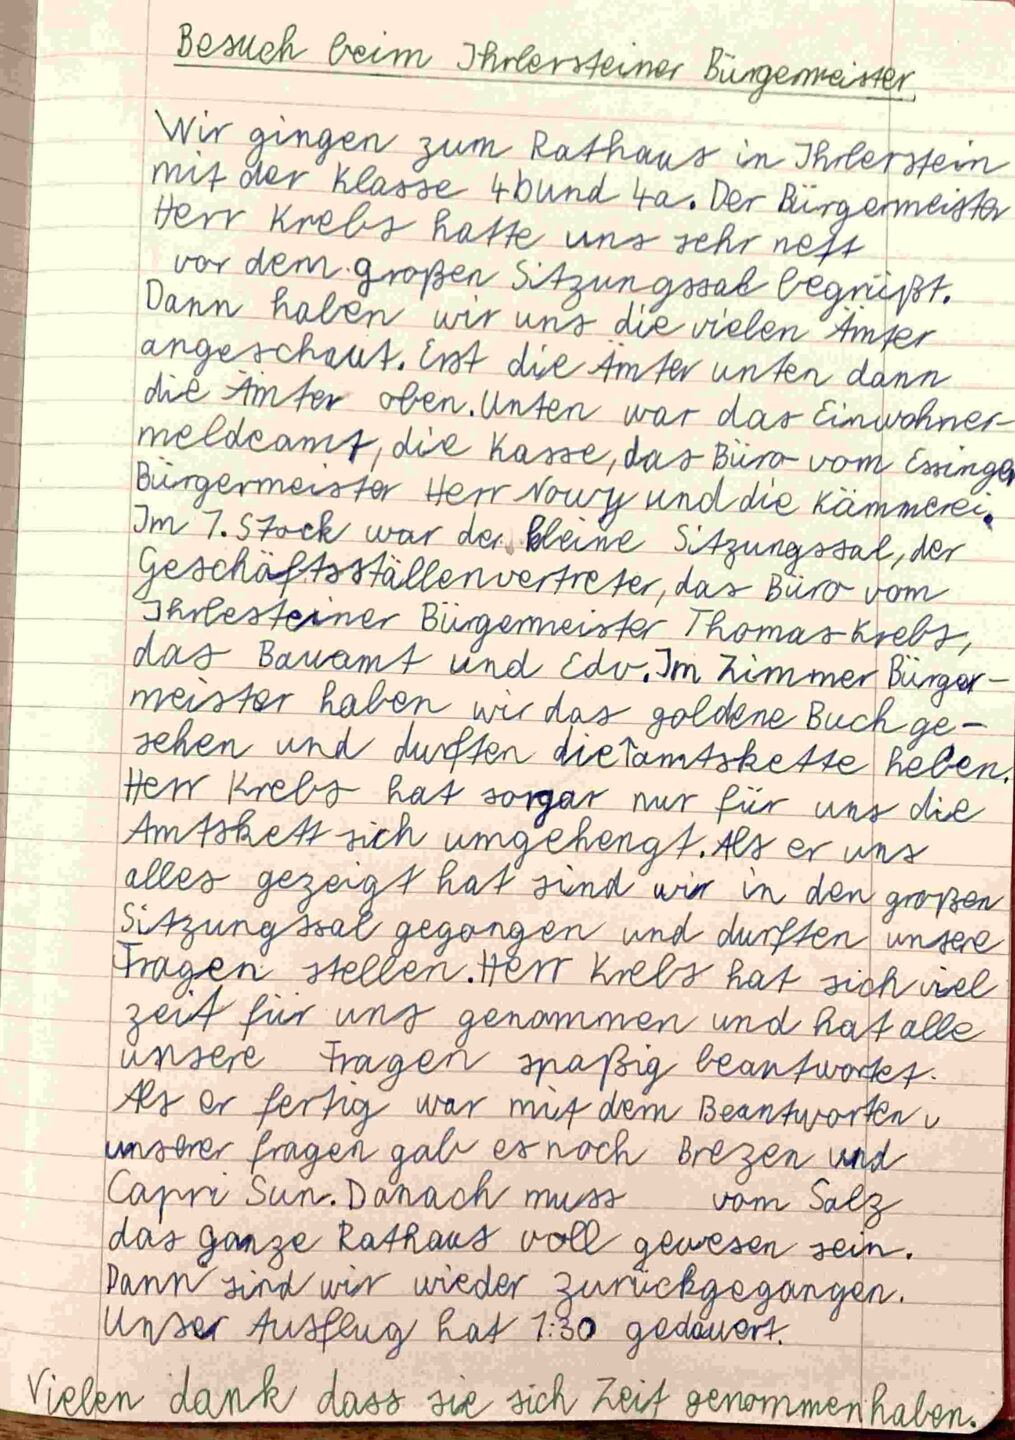 Besuch beim Ihrlersteiner Bürgermeister
Wir gingen zum Rathaus in Ihrlerstein
mit der Klasse 4b und 4a. Der Bürgermeister
Herr Krebs hatte uns sehr nett
vor dem großen Sitzungssal begrüßt.
Dann haben wir uns die vielen Ämter
angeschaut. Erst die Ämter unten dann
die Ämter oben. Unten war das Einwohner-
meldeamt, die Kasse, das Büro vom Essinger
Bürgermeister Herr Nowy und die Kämmerei.
Im 1. Stock war der kleine Sitzungssal, der
Geschäftsställenvertreter, das Büro vom
Ihrlesteiner Bürgermeister Thomas Krebs,
das Bauamt und Edv. Im Zimmer Bürger-
meister haben wir das goldene Buch ge-
sehen und durften die Tamtskette heben.
Herr Krebs hat sorgar nur für uns die
Amtskett sich umgehengt. Als er uns
alles gezeigt hat sind wir in den großen
Sitzungssal gegangen und durften unsere
Fragen stellen. Herr Krebs hat sich viel
zeit für uns genommen und hat alle
unsere Fragen spaßig beantwortet.
Als er fertig war mit dem Beantworten
unserer fragen gab es noch Brezen und
Capri Sun. Danach muss vom Salz
das ganze Rathaus voll gewesen sein.
Dann sind wir wieder zurückgegangen.
Unser Ausflug hat 1:30 gedauert.
Vielen dank dass sie sich Zeit genommen haben.